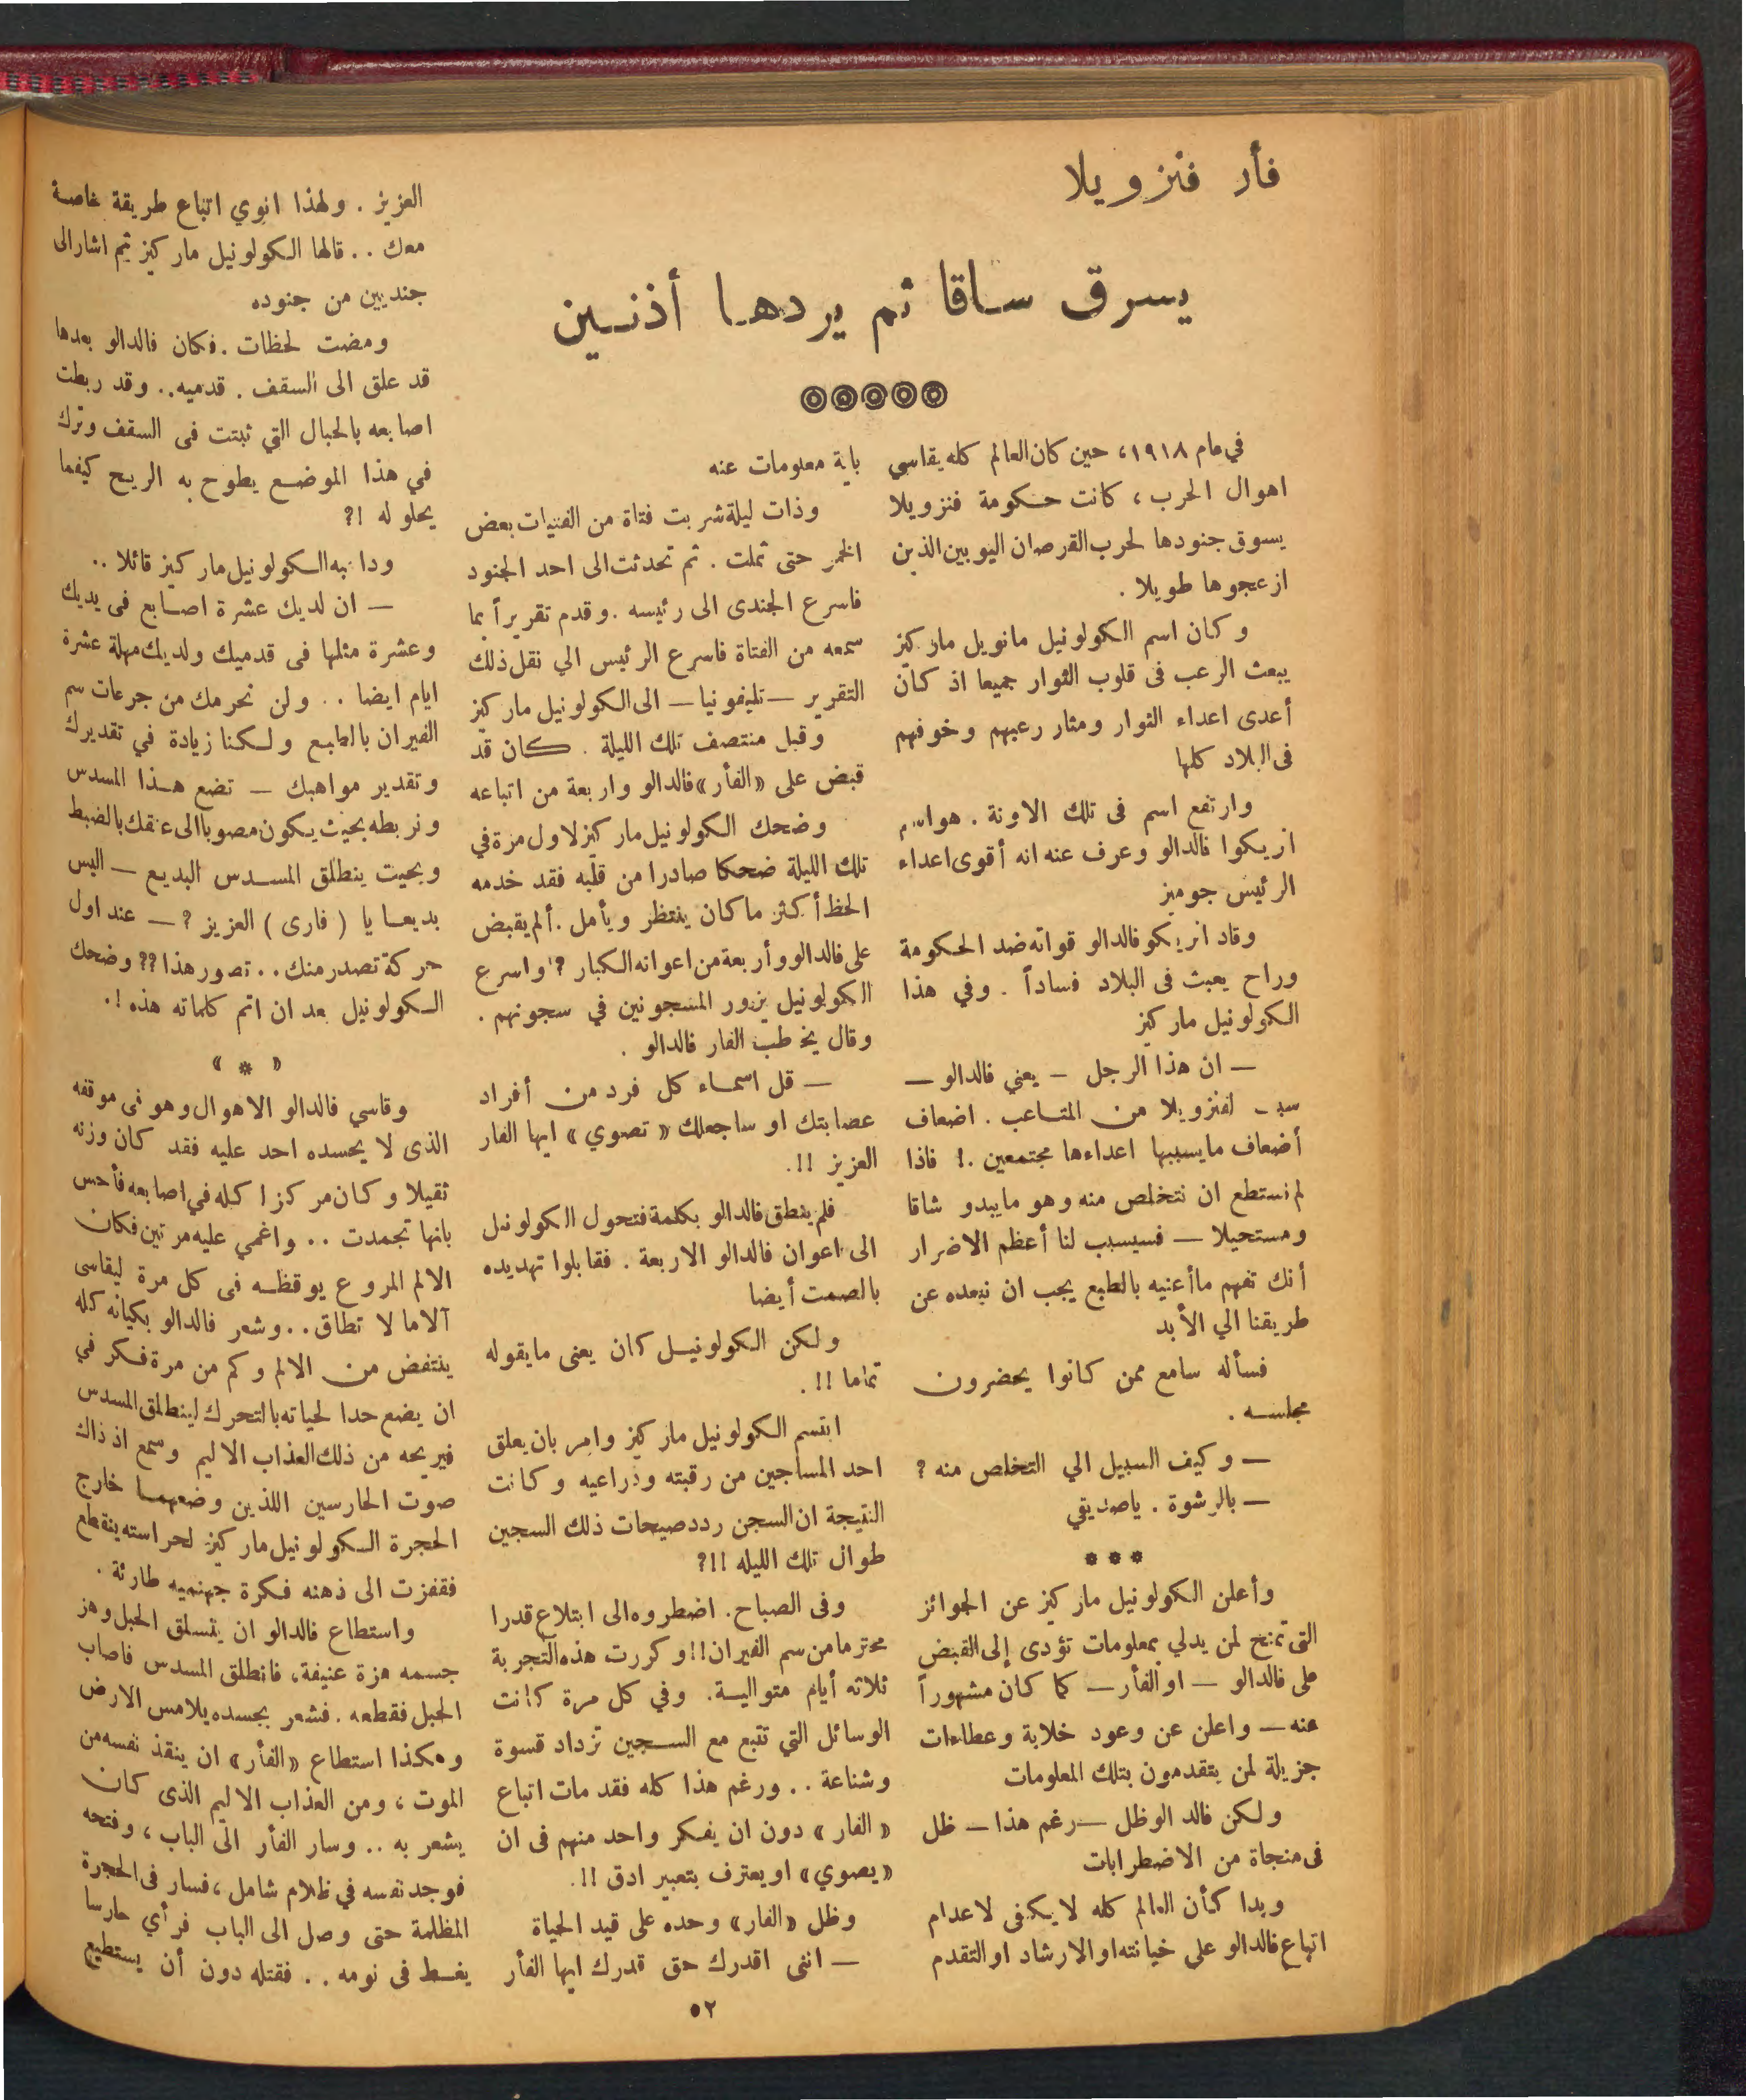 فأر فنزويلا
يسرق ساقا ثم يردها أذنين
في عام ١٩١٨، حين كان العالم كله يقاسي
اهوال الحرب ، كانت حكومة فنزويلا
يسوق جنودها لحرب القرصان اليوبين الذين
ازعجوها طويلا .
وكان اسم الكولونيل مانويل ماركيز
يبعث الرعب فى قلوب الثوار جميعا اذ كان
أعدى اعداء الثوار ومثار رعبهم وخوفهم
فى البلاد كلها
وارتفع اسم فى تلك الاونة . هو اسم
ازيكوا فالدالو وعرف عنه انه أقوى اعداء
الرئيس جوميز
وقاد انريكو فالدالو قواته ضد الحكومة
وراح يعبث فى البلاد فساداً . وفي هذا
الكولونيل ماركيز
— ان هذا الرجل – يعني فالدالو —
لفنزويلا من المتاعب . اضعاف
أضعاف مايسببها اعداءها مجتمعين .! فاذا
لم نستطع ان نتخلص منه وهو مايبدو شاقا
ومستحيلا — فسيسبب لنا أعظم الاضرار
أنك تفهم ماأعنيه بالطبع يجب ان نبعده عن
طريقنا الي الأبد
فسأله سامع ممن كانوا يحضرون
مجلسه .
— وكيف السبيل الي التخلص منه ؟
— بالرشوة . ياصديقي
* * *
وأعلن الكولونيل ماركيز عن الجوائز
التى تمنح لمن يدلي بمعلومات تؤدى إلى القبض
على فالدالو — او الفأر — كما كان مشهوراً
عنه — واعلن عن وعود خلابة وعطاءات
جزيلة لمن يتقدمون بتلك المعلومات
ولكن فالد الوظل — رغم هذا — ظل
فى منجاة من الاضطرابات
وبدا كأن العالم كله لايكفى لاعدام
اتباع فالدالو على خيانته او الارشاد او التقدم
باية معلومات عنه
وذات ليلة شربت فتاة من الفتيات بعض
الخمر حتى ثملت . ثم تحدثت الى احد الجنود
فاسرع الجندى الى رئيسه . وقدم تقريراً بما
سمعه من الفتاة فاسرع الرئيس الي نقل ذلك
التقرير — تليفونيا — الى الكولونيل ماركيز
وقبل منتصف تلك الليلة . كان قد
قبض على «الفأر» فالدالو واربعة من اتباعه
وضحك الكولونيل ماركيز لاول مرة في
تلك الليلة ضحكا صادرا من قلبه فقد خدمه
الحظ أكثر ماكان ينتظر ويأمل . ألم يقبض
على فالدالو وأربعة من اعوانه الكبار ؟ واسرع
الكولونيل يزور المسجونين في سجونهم .
وقال يخطب الفار فالدالو .
— قل اسماء كل فرد من أفراد
عصابتك او ساجعلك « تصوي » ايها الفار
العزيز !!.
فلم ينطق فالدالو بكلمة فتحول الكولونيل
الى اعوان فالدالو الاربعة . فقابلوا تهديده
بالصمت أيضا
ولكن الكولونيل كان يعنى مايقوله
تماما !! .
ابتسم الكولونيل ماركيز وامر بان يعلق
احد المساجين من رقبته وذراعيه وكانت
النتيجة ان السجن ردد صيحات ذلك السجين
طوال تلك الليله !!؟
وفى الصباح. اضطروه الى ابتلاع قدرا
محترما من سم الفيران!! وكررت هذه التجربة
ثلاثه أيام متوالية. وفي كل مرة كانت
الوسائل التي تتبع مع السجين تزداد قسوة
وشناعة . . ورغم هذا كله فقد مات اتباع
« الفار » دون ان يفكر واحد منهم فى ان
«يصوي» او يعترف بتعبير ادق !!.
وظل «الفار» وحده على قيد الحياة
— اننى اقدرك حق قدرك ايها الفأر
العزيز . ولهذا انوي اتباع طريقة خاصة
معك . . قالها الكولونيل ماركيز ثم اشار الى
جنديين من جنوده
ومضت لحظات . فكان فالدالو بعدها
قد علق الى السقف . قدميه . . وقد ربطت
اصابعه بالحبال التي ثبتت فى السقف وترك
في هذا الموضع يطوح به الريح كيفما
يحلو له !؟
الكولونيل ماركيز قائلا ..
— ان لديك عشرة اصابع فى يديك
وعشرة مثلها فى قدميك ولديك مهلة عشرة
ايام ايضا .. ولن نحرمك من جرعات سم
الفيران بالطبع ولكنا زيادة في تقديرك
وتقدير مواهبك — تضع هذا المسدس
ونربطه بحيث يكون مصوبا الى عنقك بالضبط
وبحيت ينطلق المسدس البديع — اليس
بديعا يا ( فارى ) العزيز ؟ — عند اول
حركة تصدر منك . . تصور هذا ؟؟ وضحك
الكولونيل بعد ان اتم كلماته هذه !.
« * »
وقاسي فالدالو الاهوال وهو فى موقفه
الذى لا يحسده احد عليه فقد كان وزنه
ثقيلا وكان مركزا كله في اصابعه فأحس
بانها تجمدت .. واغمي عليه مرتين فكان
الالم المروع يوقظه فى كل مرة ليقاسى
آلاما لا تطاق . . وشعر فالدالو بكيانه كله
ينتفض من الالم وكم من مرة فكر في
ان يضع حدا لحياته بالتحرك لينطلق المسدس
فيريحه من ذلك العذاب الاليم وسمع اذ ذاك
صوت الحارسين اللذين وضعهما خارج
الحجرة الكولونيل ماركيز لحراسته ينقطع
فقفزت الى ذهنه فكرة جهنميه طارئة .
واستطاع فالدالو ان يتسلق الحبل وهز
جسمه هزة عنيفة، فانطلق المسدس فاصاب
الحبل فقطعه . فشعر بجسده يلامس الارض
وهكذا استطاع «الفأر» ان ينقذ نفسه من
الموت ، ومن العذاب الاليم الذى كان
يشعر به .. وسار الفأر الى الباب ، وفتحه
فوجد نفسه في ظلام شامل ، فسار فى الحجرة
المظلمة حتى وصل الى الباب فرأي حارسا
يغط فى نومه . . فقتله دون أن يستطيع
٥٢